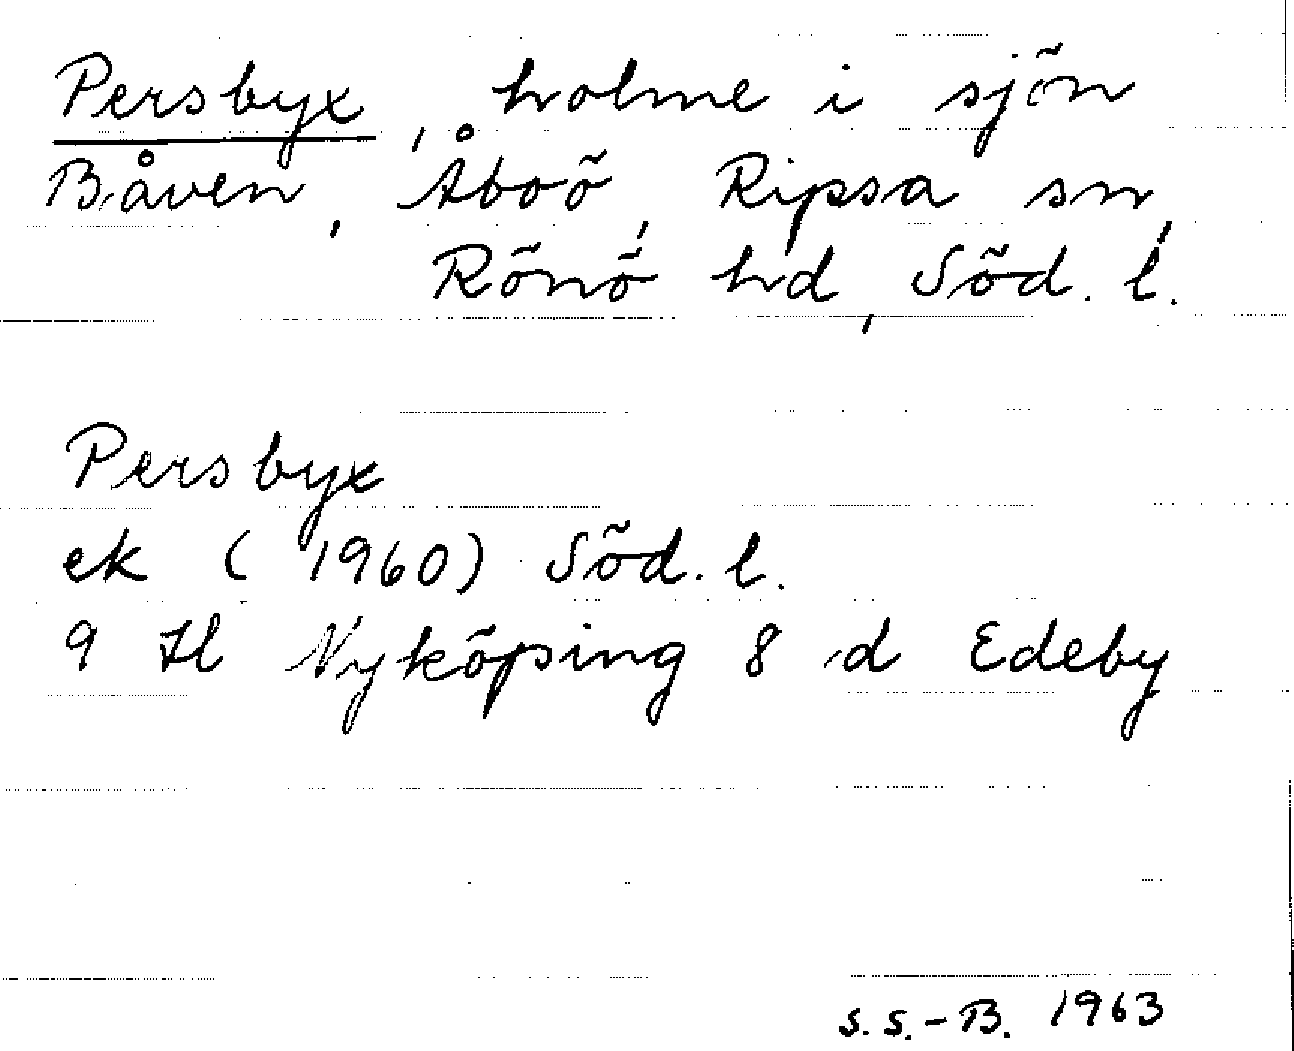 Persbyx, holme i sjön
Båven, Åboö, Ripsa sn,
Rönö hd, Söd. l.
Persbyx
ek (1960) Söd. l.
9 Hl Nyköping 8 d Edeby
S.S.-B. 1963